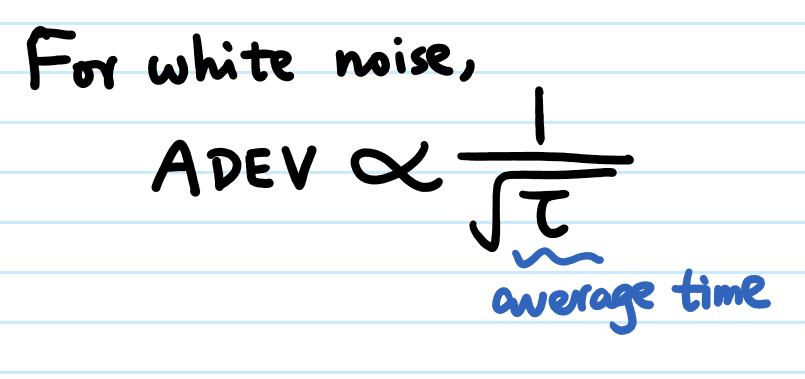 For white noise,
ADEV ∝ 1/√τ
average time